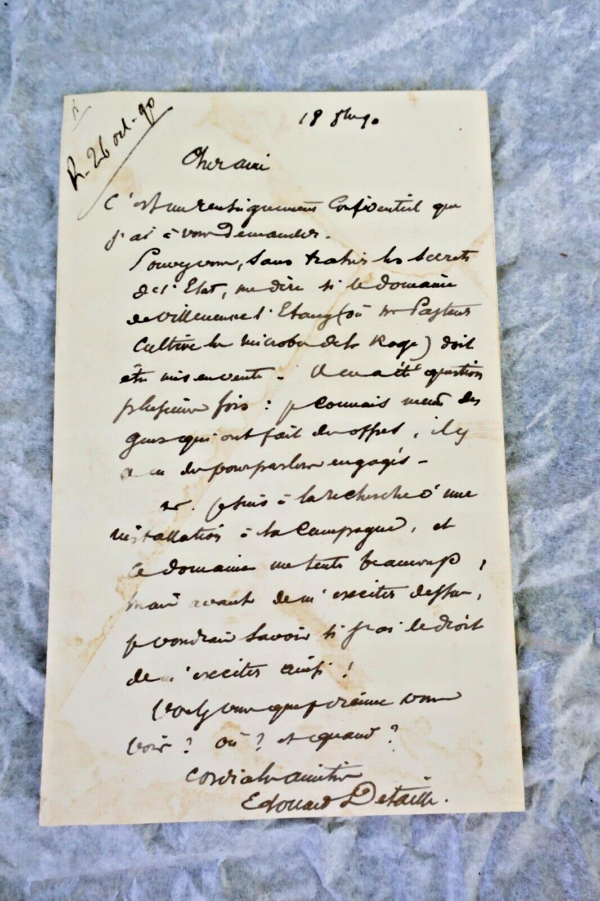 R. 26 oct. 90
18 8bre 90
Cher ami
C'est un renseignement confidentiel que
j'ai à vous demander.
Pouvez vous, sans trahir les secrets
de l'Etat, me dire si le domaine
de Villeneuve l'Etang (où Mr Pasteur
cultive le microbe de la Rage) doit
être mis en vente. Il en a été question
plusieurs fois : je connais même des
gens qui ont fait des offres, il y
a eu des pourparlers engagés.
Or. je suis à la recherche d'une
installation à la campagne, et
ce domaine me tente beaucoup,
mais avant de m'exciter dessus,
je voudrais savoir si j'ai le droit
de m'exciter ainsi !
Voulez vous que je vienne vous
voir ? où ? et quand ?
Cordiale amitié
Edouard Detaille.